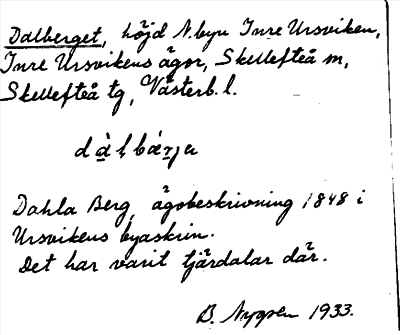 Dalberget, höjd N. byn Inre Ursviken,
Inre Ursvikens ägor, Skellefteå m,
Skellefteå tg, Västerb. l.
Dahla Berg, ägobeskrivning 1848 i
Ursvikens byaskrin.
Det har varit tjärdalar där.
B. 1933.